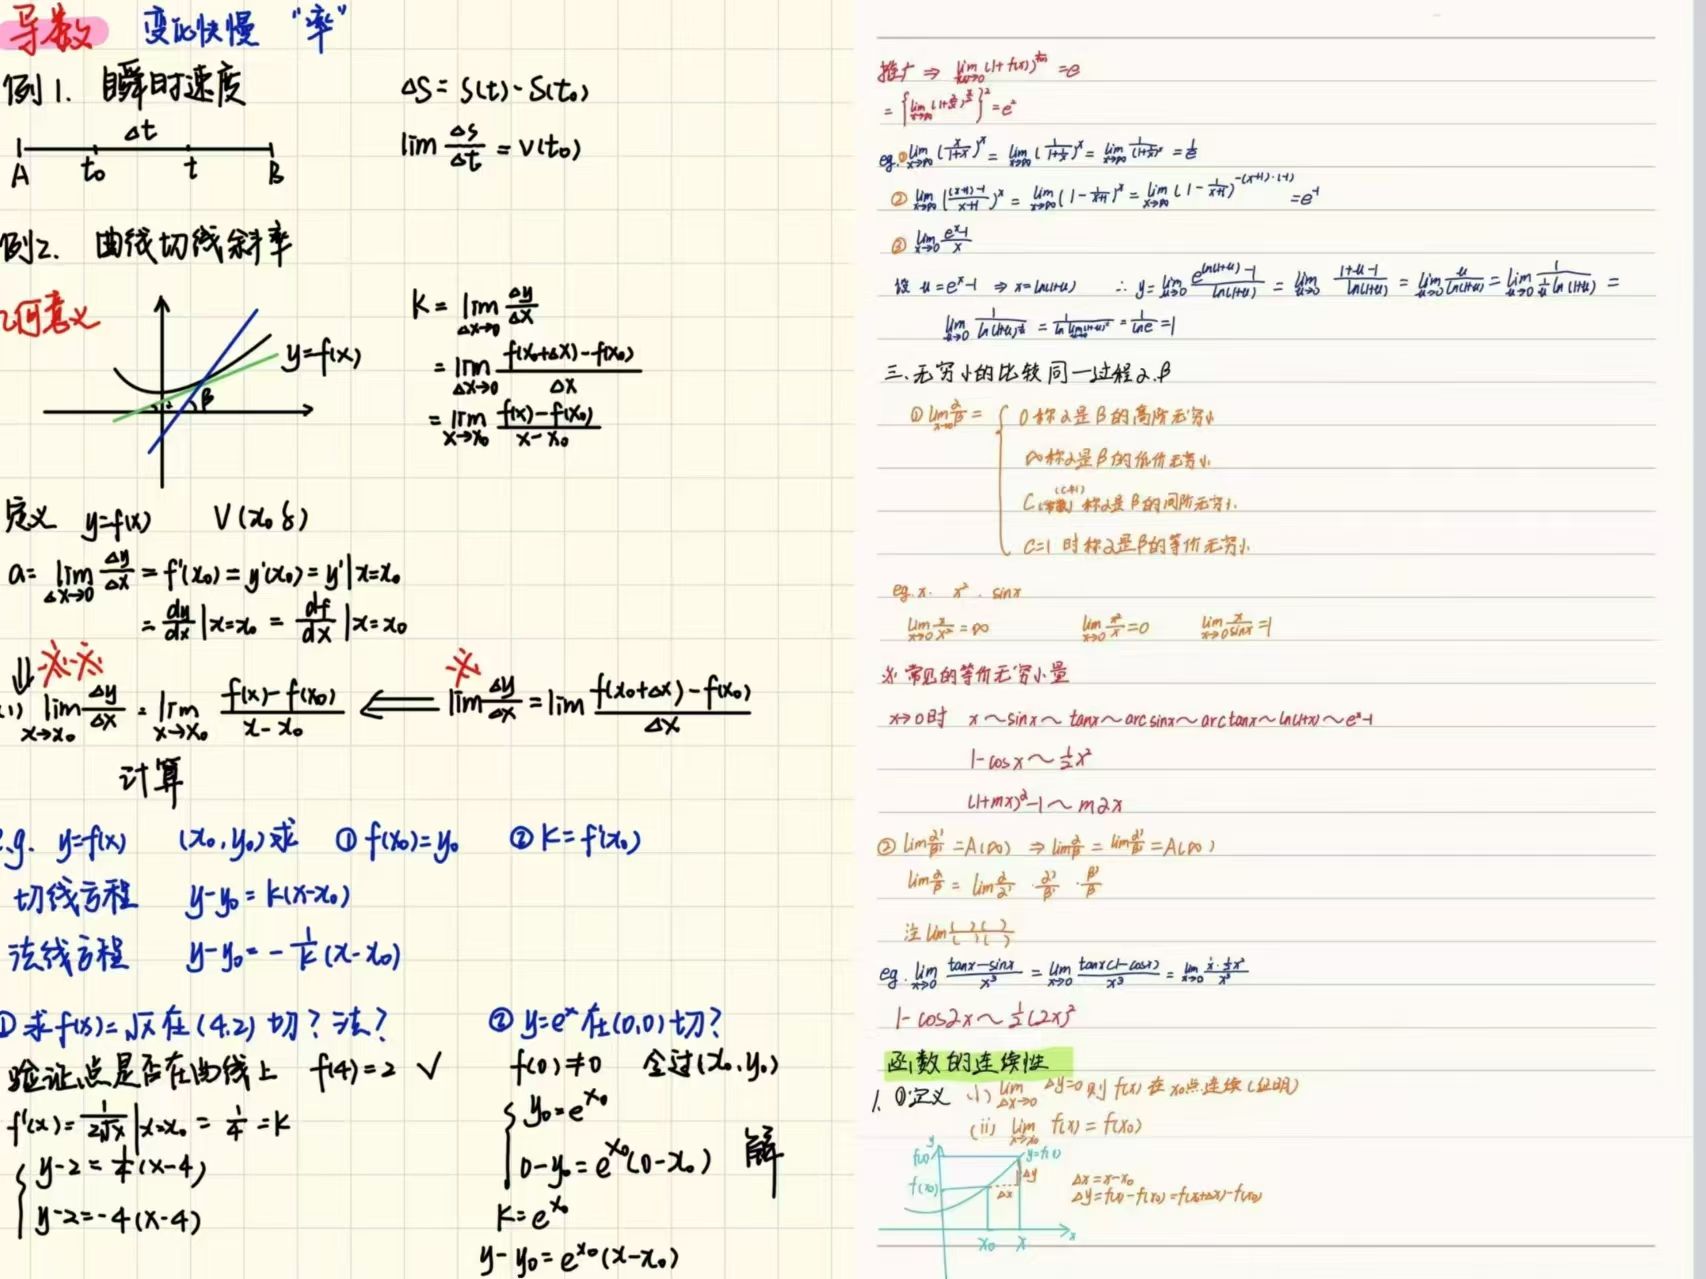 导数 变化快慢 "率"
例1. 瞬时速度
ΔS = S(t) - S(t₀)
lim Δs/Δt = v(t₀)
Δt
A t₀ t B
例2. 曲线切线斜率
几何意义
y=f(x)
β
K = lim(Δx→0) Δy/Δx
= lim(Δx→0) (f(x₀+Δx)-f(x₀))/Δx
= lim(x→x₀) (f(x)-f(x₀))/(x-x₀)
定义 y=f(x) V(x₀ δ)
a = lim(Δx→0) Δy/Δx = f'(x₀) = y'(x₀) = y'|x=x₀
= dy/dx |x=x₀ = df/dx |x=x₀
⇓
(1) lim(x→x₀) Δy/Δx = lim(x→x₀) (f(x)-f(x₀))/(x-x₀) ⟸ lim Δy/Δx = lim (f(x₀+Δx)-f(x₀))/Δx
计算
e.g. y=f(x) (x₀,y₀)求 ① f(x₀)=y₀ ② K=f'(x₀)
切线方程 y-y₀=k(x-x₀)
法线方程 y-y₀=-1/k(x-x₀)
① 求f(x)=√x在(4,2)切?法?
验证点是否在曲线上 f(4)=2 √
f'(x)=1/(2√x)|x=x₀ = 1/4 = K
y-2=1/4(x-4)
y-2=-4(x-4)
② y=eˣ在(0,0)切?
f(0)≠0 全过(x₀,y₀)
y₀=e^x₀
0-y₀=e^x₀(0-x₀) 解
K=e^x₀
y-y₀=e^x₀(x-x₀)
推广 ⇒ lim (1+f(x))^(1/f(x)) = e
= e²
eg.① lim(x→∞) (x/(1+x))ˣ = lim(x→∞) = lim(x→∞) = 1/e
② lim(x→∞) (((x+1)-1)/(x+1))ˣ = lim(x→∞) (1-1/(x+1))ˣ = lim(x→∞) (1-1/(x+1))^(-(x+1)·(-1)) = e⁻¹
③ lim(x→0) (eˣ-1)/x
设 u=eˣ-1 ⇒ x=ln(1+u) ∴ y=lim(u→0) (e^(ln(1+u))-1)/ln(1+u) = lim(u→0) (1+u-1)/ln(1+u) = lim(u→0) u/ln(1+u) = lim(u→0) 1/((1/u)ln(1+u)) =
lim(u→0) 1/ln(1+u)^(1/u) = = 1/lne = 1
三、无穷小的比较 同一过程α.β
① lim α/β = 0 称α是β的高阶无穷小
∞ 称α是β的低阶无穷小
C(常数) (C≠1) 称α是β的同阶无穷小
C=1 时称α是β的等价无穷小
eg. x. x². sinx
lim(x→0) x/x² = ∞ lim(x→0) x²/x = 0 lim(x→0) x/sinx = 1
※ 常见的等价无穷小量
x→0时 x~sinx~tanx~arcsinx~arctanx~ln(1+x)~eˣ-1
1-cosx~½x²
(1+mx)^α-1~mαx
② lim α'/β' = A(∞) ⇒ lim α/β = lim α'/β' = A(∞)
lim α/β = lim α/α' · α'/β' · β'/β
注 lim ( )( )/( )( )
eg. lim(x→0) (tanx-sinx)/x³ = lim(x→0) tanx(1-cosx)/x³ = lim(x→0) (x·½x²)/x³
1-cos2x~½(2x)²
函数的连续性
1. ①定义 (i) lim(Δx→0) Δy=0 则f(x)在x₀点连续(证明)
(ii) lim(x→x₀) f(x)=f(x₀)
y
f(x) y=f(x)
f(x₀) Δy
Δx
x₀ x x
Δx=x-x₀
Δy=f(x)-f(x₀)=f(x₀+Δx)-f(x₀)